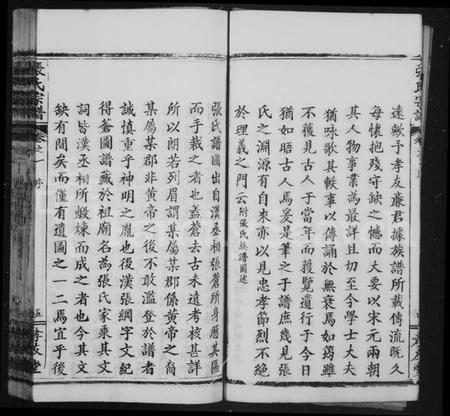 遠歟予孝友廉君據族譜所載傳流既久
每懷抱殘守缺之憾而大要以宋元兩朝
其人物事業為最詳且切至今學士大夫
猶咏歌其軼事以傳誦於無衰焉如筠雖
不獲見古人于當年而獲覽遺行于今日
猶如晤古人焉爰是筆之于譜庶幾見張
氏之淵源有自來亦以見忠孝節烈不絶
於理義之門云附張氏族譜圖述
張氏譜圖出自漢丞相張蒼所身應其區
而手裁之者也蓋蒼去古未遠考核甚詳
所以朗若列眉謂某屬某郡係黃帝之裔
某屬某郡非黃帝之後不敢濫登於譜者
誠慎重乎神明之胤也後漢張綱字文紀
得蒼圖譜藏於祖廟名為張氏家乗其文
詞皆漢丞相所煅煉而成之者也今其文
缺有間矣而僅有遺圖之一二焉宜乎後
張氏宗譜
卷之一
五
孝友堂